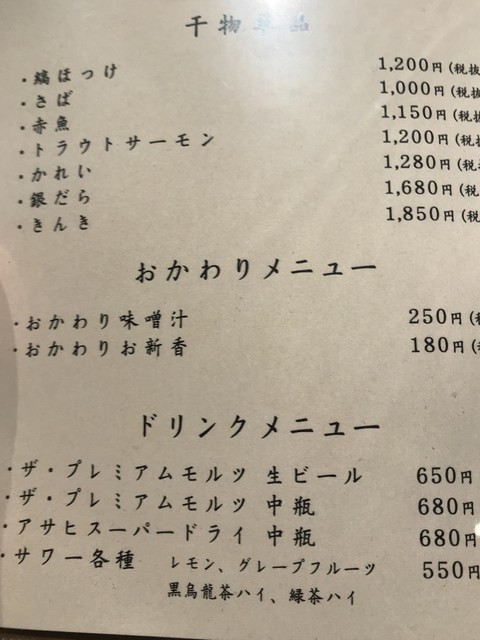 干物単品
・縞ほっけ 1,200円(税抜
・さば 1,000円(税抜
・赤魚 1,150円(税抜
・トラウトサーモン 1,200円(税抜
・かれい 1,280円(税
・銀だら 1,680円(税
・きんき 1,850円(税
おかわりメニュー
・おかわり味噌汁 250円(税
・おかわりお新香 180円(
ドリンクメニュー
・ザ・プレミアムモルツ 生ビール 650円
・ザ・プレミアムモルツ 中瓶 680円
・アサヒスーパードライ 中瓶 680円
・サワー各種 レモン、グレープフルーツ 550円
黒烏龍茶ハイ、緑茶ハイ